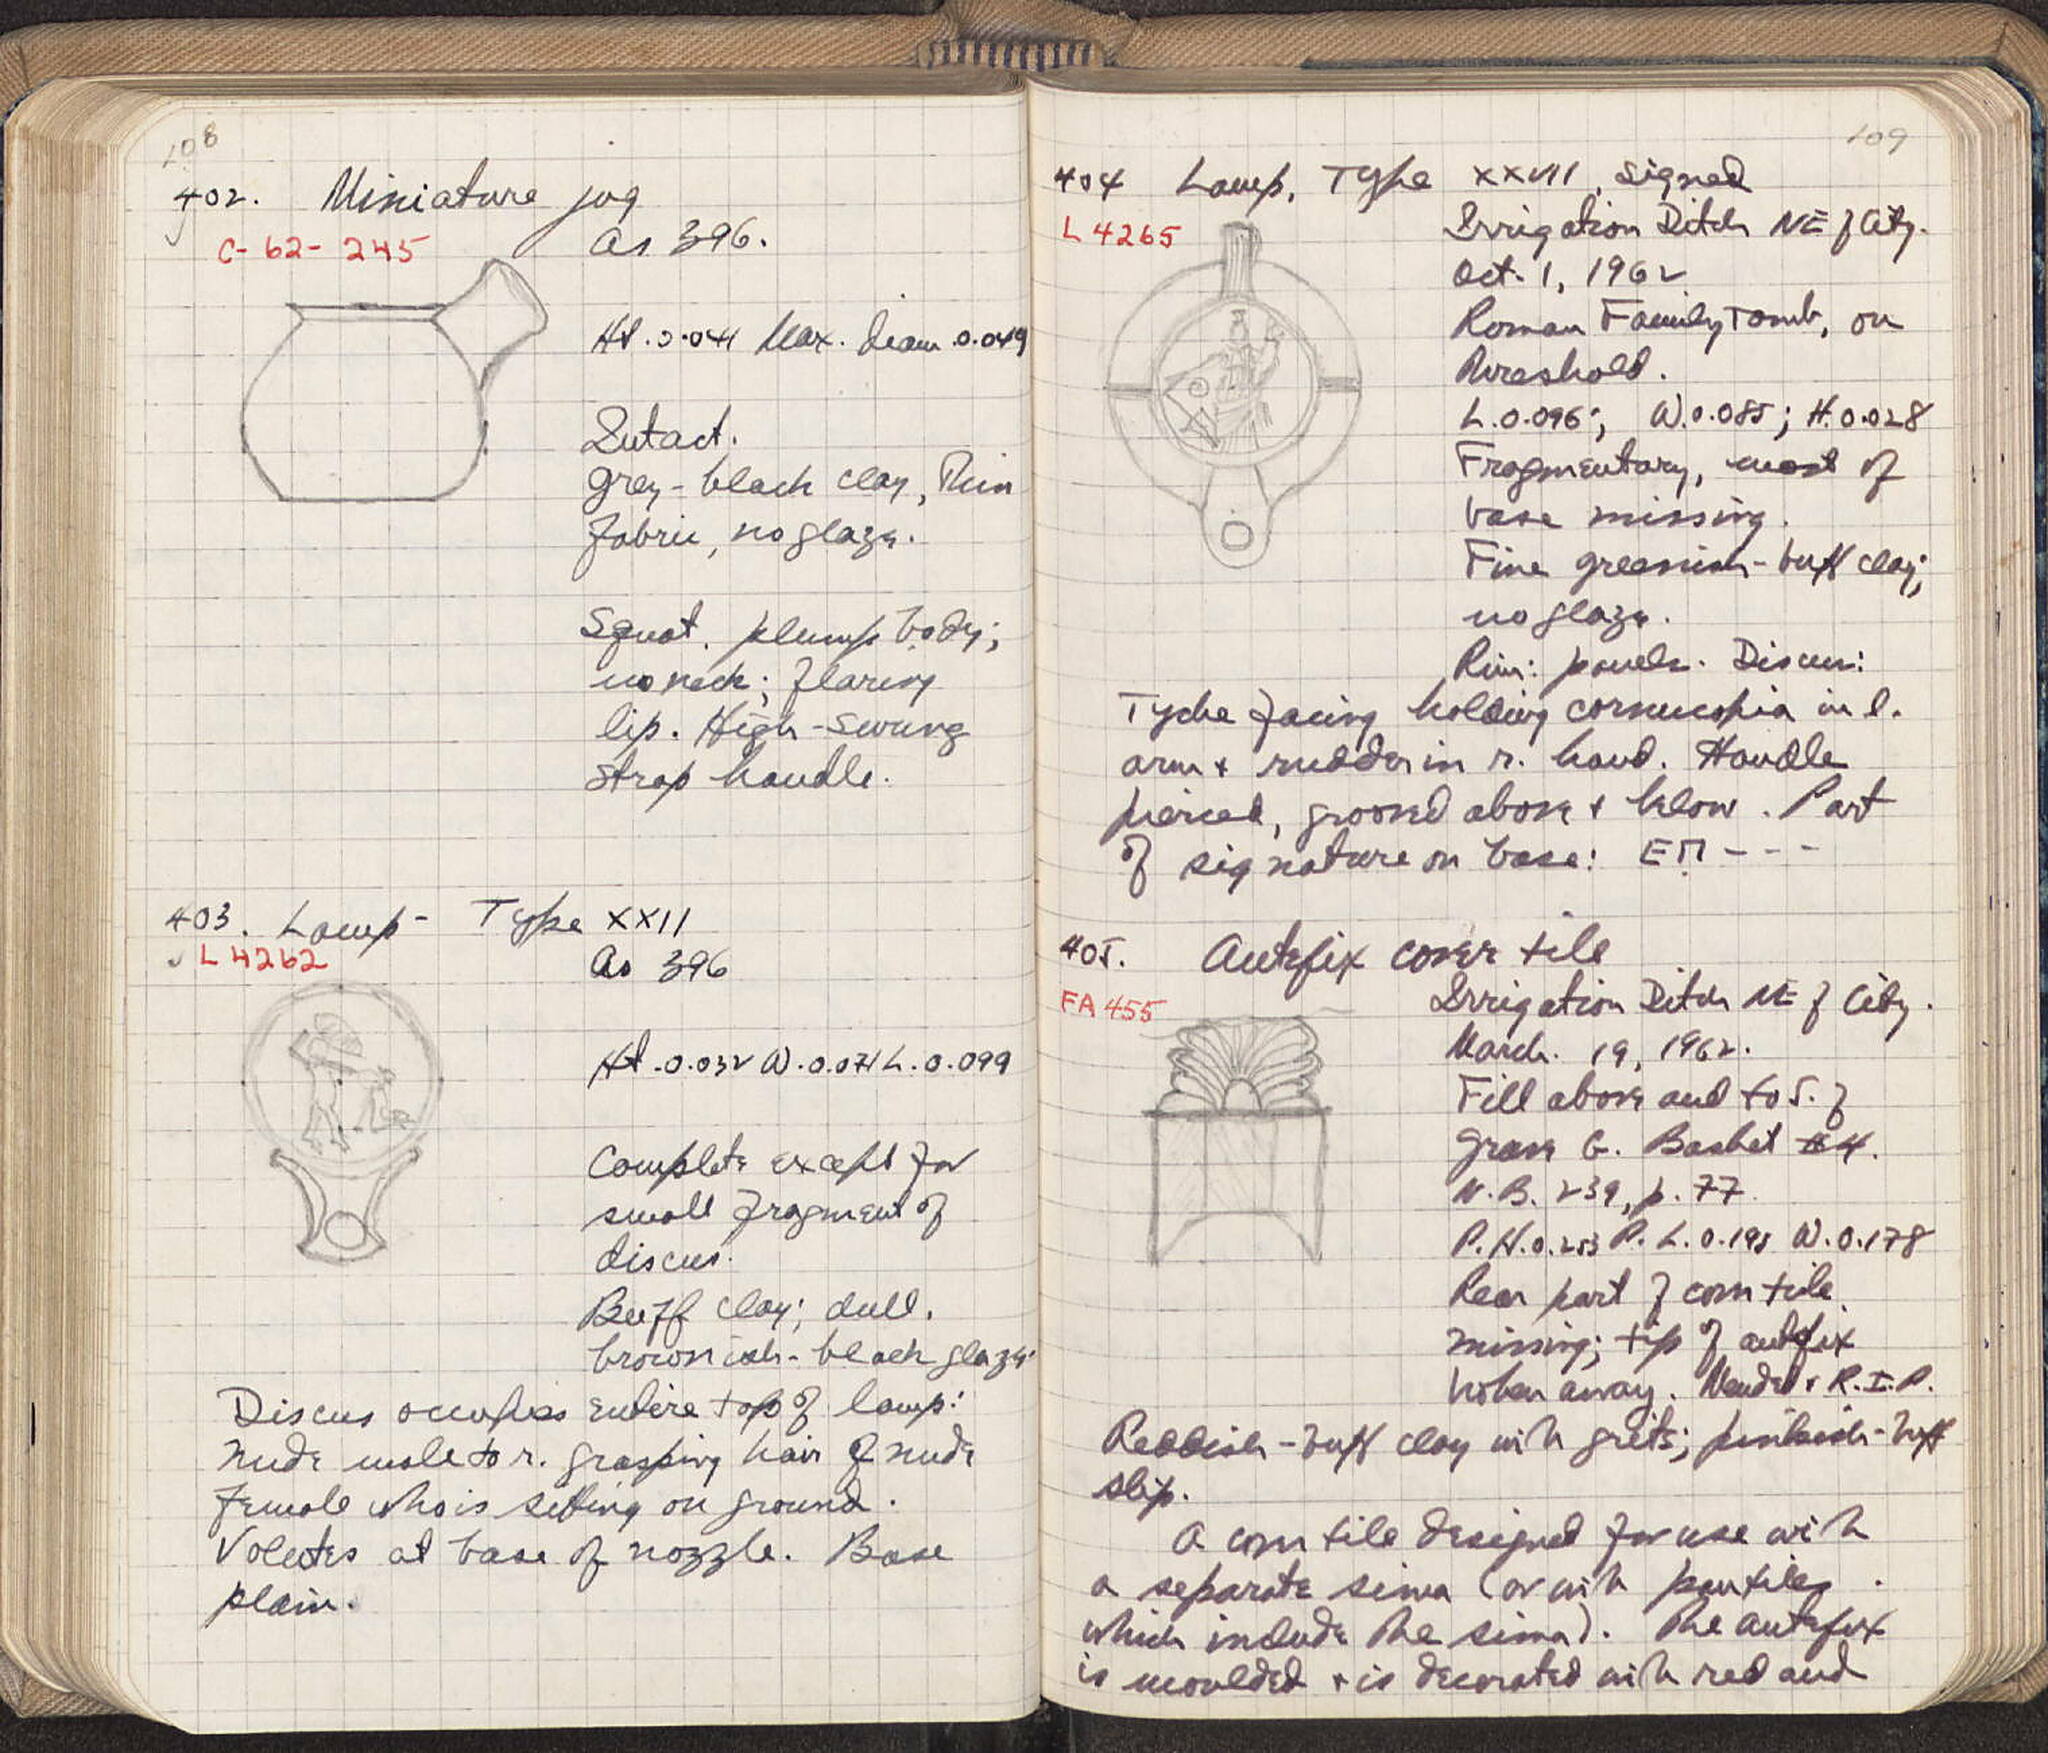 108
402. Miniature jug
C-62-245
As 396.
Ht. 0.041 Max. Diam. 0.049
Intact.
Grey-black clay, Thin
fabric, no glaze.
Squat, plump body;
no neck; flaring
lip. High-swung
strap handle.
403. Lamp- Type XXII
L 4262
As 396
Ht. 0.032 W. 0.071 L. 0.099
Complete except for
small fragment of
discus.
Buff clay; dull,
brownish-black glaze.
Discus occupies entire top of lamp:
nude male to r. grasping hair of nude
female who is sitting on ground.
Volutes at base of nozzle. Base
plain.
109
404 Lamp, Type XXVII, signed
L 4265
Irrigation Ditch NE of City.
Oct. 1, 1962
Roman Family Tomb, on
Threshold.
L. 0.096; W. 0.085; H. 0.028
Fragmentary, most of
base missing.
Fine greenish-buff clay;
no glaze.
Rim: panels. Discus:
Tyche facing holding cornucopia in l.
arm + rudder in r. hand. Handle
pierced, grooved above + below. Part
of signature on base: ΕΠ̣ - - -
405. Antefix cover tile
FA 455
Irrigation Ditch NE of City.
March. 19, 1962.
Fill above and to S. of
Grave G. Basket #4.
N.B. 239, p. 77
P.H. 0.253 P.L. 0.195 W. 0.178
Rear part of cover tile
missing; tip of antefix
broken away. Mended + R.I.P.
Reddish-buff clay with grits; pinkish-buff
slip.
A cover tile designed for use with
a separate sima (or with pantiles
which include the sima). The antefix
is moulded + is decorated with red and